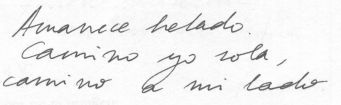 Amanece helado.
Camino yo sola,
camino a mi lado